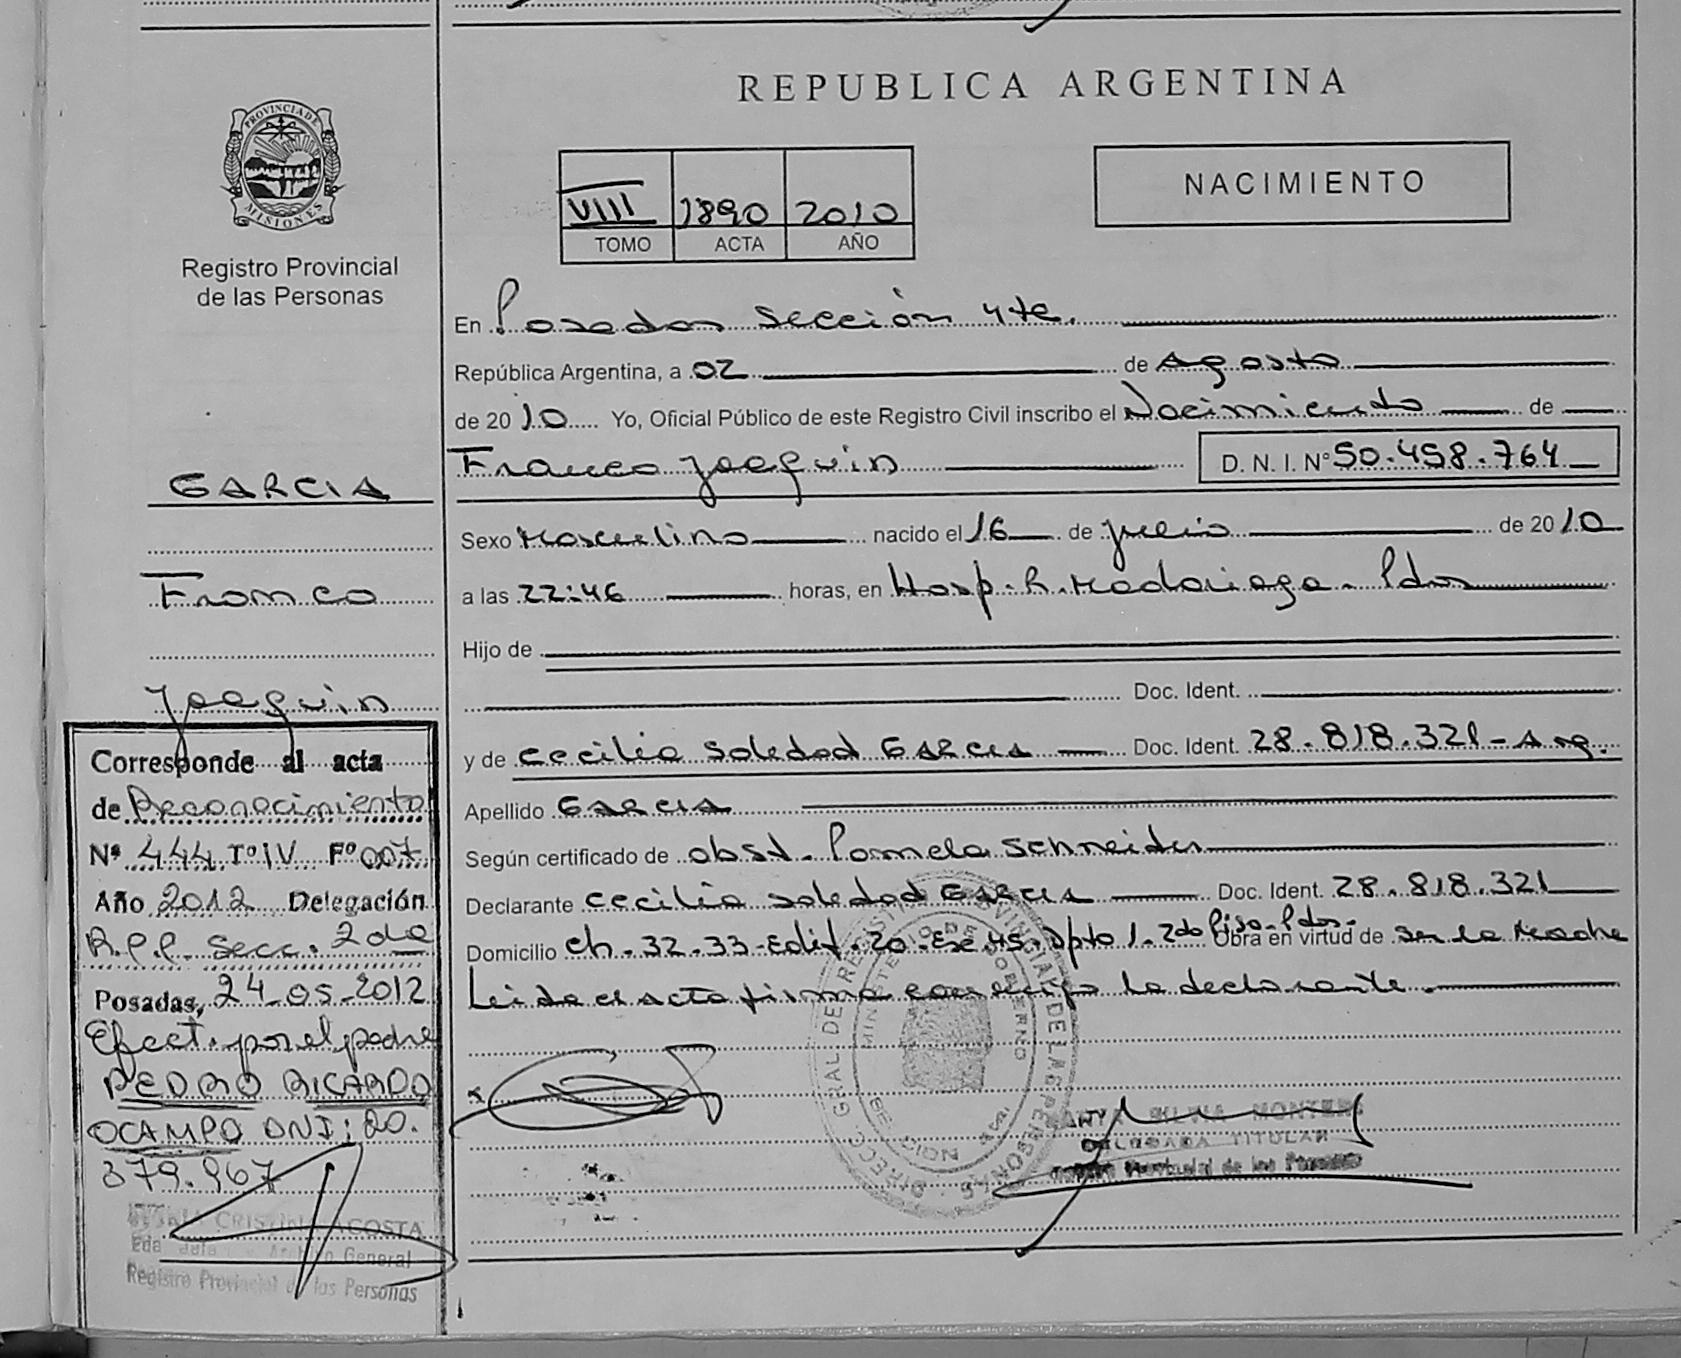 PROVINCIA DE
MISIONES
Registro Provincial
de las Personas
GARCIA
Franco
Joaquin
Corresponde al acta
de Reconocimiento
Nº 444 Tº IV Fº 007
Año 2012 Delegación
R.P.P. Secc. 2da
Posadas, 24-05-2012
Efect. por el padre
PEDRO RICARDO
OCAMPO DNI: 20.
379.967
CRISTINA ACOSTA
General
Registro Provincial de las Personas
REPUBLICA ARGENTINA
VIII 1890 2010
TOMO ACTA AÑO
NACIMIENTO
En Posadas sección 4ta.
República Argentina, a 02 de Agosto
de 2010 Yo, Oficial Público de este Registro Civil inscribo el Nacimiento de
Franco Joaquin D. N. I. Nº 50.458.764
Sexo Masculino nacido el 16 de julio de 2010
a las 22:46 horas, en Hosp. R. Madariaga - Pdas
Hijo de
Doc. Ident.
y de Cecilia Soledad GARCIA Doc. Ident. 28.818.321 - Arg.
Apellido GARCIA
Según certificado de obst. Pamela Schneider
Declarante Cecilia Soledad GARCIA Doc. Ident. 28.818.321
Domicilio Ch. 32.33-Edif. 20-Esc 45-Dpto 1-2do Piso-Pdas. Obra en virtud de ser la Madre
Leida el acta firma conmigo la declarante.
SILVIA MONTERO
DELEGADA TITULAR
Registro Provincial de las Personas